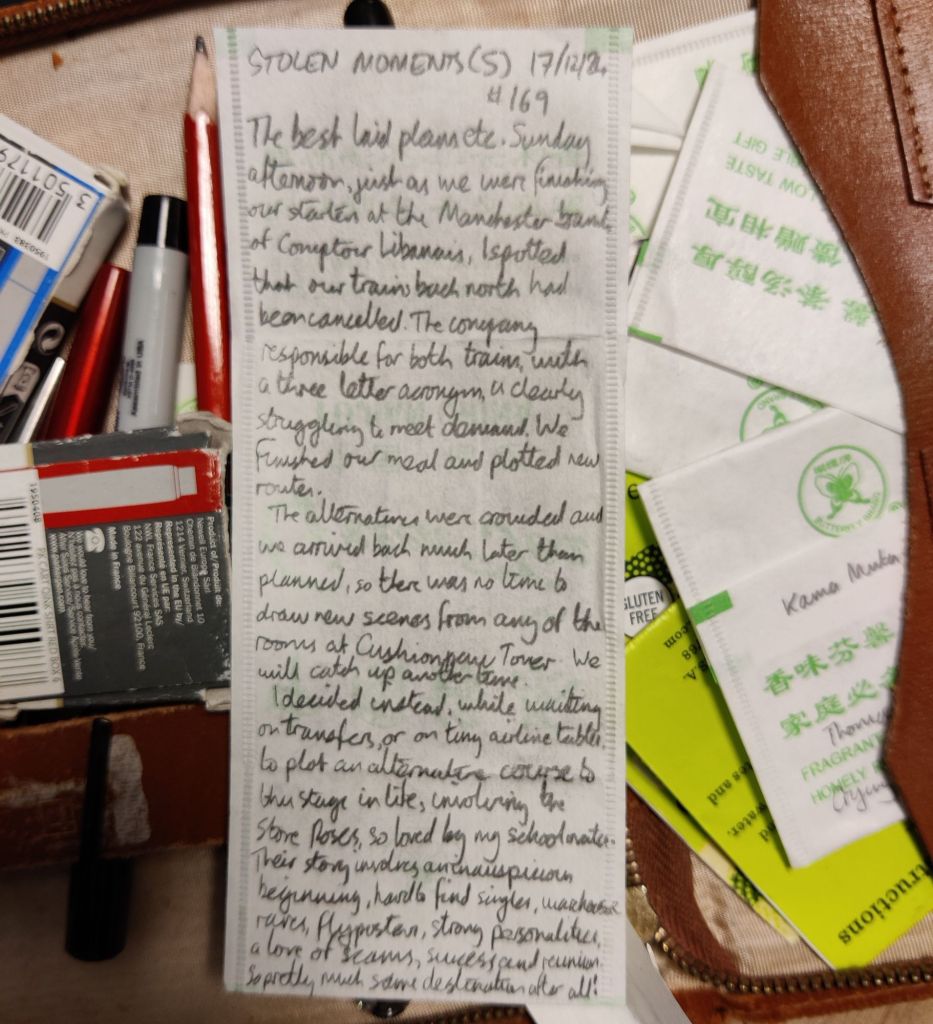 STOLEN MOMENTS(S) 17/12/24
#169
The best laid plans etc. Sunday
afternoon, just as we were finishing
our starters at the Manchester branch
of Comptoir Libanais, I spotted
that our train back north had
been cancelled. The company
responsible for both trains, with
a three letter acronym, is clearly
struggling to meet demand. We
finished our meal and plotted new
routes.
The alternatives were crowded and
we arrived back much later than
planned, so there was no time to
draw new scenes from any of the
rooms at Tower. We
will catch up another time.
I decided instead, while waiting
on transfers, or on tiny airline tables,
to plot an alternative course to
this stage in life, involving the
Stone Roses, so loved by my schoolmates.
Their story involves an inauspicious
beginning, hard to find singles, warehouse
raves, flyposters, strong personalities,
a love of scams, success and reunion.
So pretty much same destination after all!
3 501179
1950408
Product of/Produit de:
Newell Europe Sàrl
Chemin de Blandonnet 10
1214 Vernier, Switzerland
Represented in the EU by/
Représenté en UE par:
NWL France Services SAS
122 avenue du Général Leclerc
Boulogne Billancourt 92100, France
Made in France
LOW TASTE
GIFT
茶汤醇厚
馈赠相宜
BUTTERFLY BRAND
Kama
香味芬馥
家庭必
FRAGRANT
HOMELY
GLUTEN
FREE
.com
water.
ructions